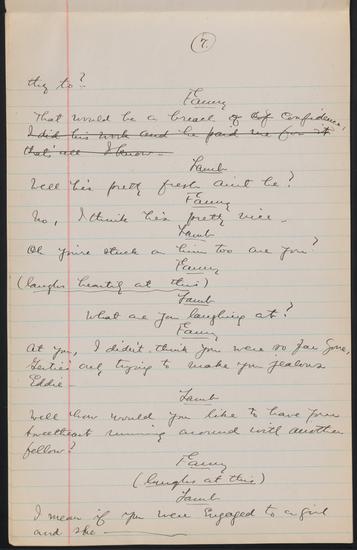 7.
they to?
Fanny
That would be a breach of of Confidence,
I did his work and he paid me for it
that's all I know.
Lamb
Well he's pretty fresh aint he?
Fanny
No, I think he's pretty nice.
Lamb
Oh you're stuck on him too are you?
Fanny
(laughs heartily at this)
Lamb
What are you laughing at?
Fanny
At you, I didn't think you were so far gone,
Gertie's only trying to make you jealous
Eddie—
Lamb
Well how would you like to have your
sweetheart running around with another
fellow?
Fanny
(laughs at this)
Lamb
I mean if you were engaged to a girl
and she